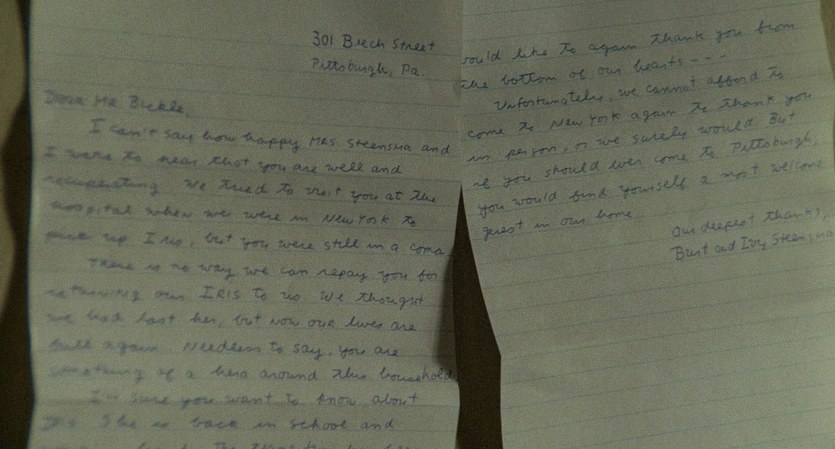 301 Brech Street
Pittsburgh, Pa.
Dear Mr Bickle,
I can't say how happy MRS Steensma and
I were to hear that you are well and
recuperating. We tried to visit you at the
hospital when we were in New York to
pick up Iris, but you were still in a coma
There is no way we can repay you for
returning our IRIS to us. We thought
we had lost her, but now our lives are
full again. Needless to say, you are
something of a hero around this household
I'm sure you want to know about
Iris. She is back in school and
would like to again thank you from
the bottom of our hearts---
Unfortunately, we cannot afford to
come to New York again to thank you
in person, or we surely would. But
if you should ever come to Pittsburgh,
you would find yourself a most welcome
guest in our home
Our deepest thanks,
Burt and Ivy Steensma